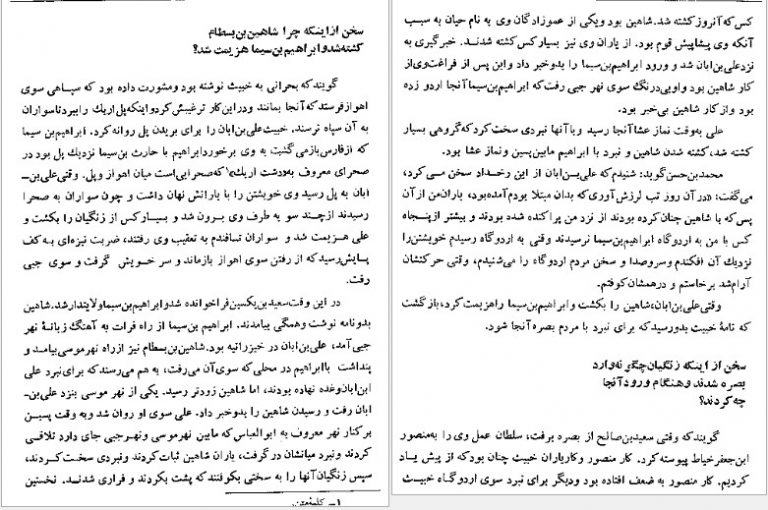 سخن از اینکه چرا شاهین بن بسطام
کشته شد و ابراهیم بن سیما هزیمت شد؟
گویند که بحرانی به خبیث نوشته بود و مشورت داده بود که سپاهی سوی
اهواز فرستد که آنجا بمانند و در این کار ترغیبش کرد و اینکه پل اریك را ببرد تا سواران
به آن سپاه نرسند. خبیث علی بن ابان را برای بریدن پل روانه کرد. ابراهیم بن سیما
که از فارس باز می‌گشت به وی برخورد ابراهیم با حارث بن سیما نزدیك پل بود در
صحرای معروف به «دشت اریك» که صحرایی است میان اهواز و پل. وقتی علی بن-
ابان به پل رسید وی خویشتن را با یارانش نهان داشت و چون سواران به صحرا
رسیدند از چند سو به طرف وی برون شد و بسیار کس از زنگیان را بکشت و
علی هزیمت شد و سواران تا فندم به تعقیب وی رفتند، ضربت نیزه‌ای به کف
پایش رسید که از رفتن سوی اهواز بازماند و سر خویش گرفت و سوی جبی
رفت.
در این وقت سعید بن یکسین فراخوانده شد و ابراهیم بن سیما ولایتدار شد. شاهین
بدو نامه نوشت و همگی بیامدند. ابراهیم بن سیما از راه فرات به آهنگ زبانهٔ نهر
جبی آمد، علی بن ابان در خیزرانیه بود. شاهین بن بسطام نیز از راه نهر موسی بیامد و
پنداشت با ابراهیم در محلی که سوی آن می‌رفت، به هم می‌رسند که برای نبرد علی
ابن ابان وعده نهاده بودند، اما شاهین زودتر رسید. یکی از نهر موسی بنزد علی بن-
ابان رفت و رسیدن شاهین را بدو خبر داد. علی سوی او روان شد و به وقت پسین
بر کنار نهر معروف به ابوالعباس که مابین نهر موسی و نهر جبی جای دارد تلاقی
کردند و نبرد میانشان درگرفت، یاران شاهین ثبات کردند و نبردی سخت کردند،
سپس زنگیان آنها را به سختی بکوفتند که پشت بکردند و فراری شدند. نخستین
۱- کلمهٔ متن.
کس که آنروز کشته شد. شاهین بود و یکی از عموزادگان وی به نام حیان به سبب
آنکه وی پیشاپیش قوم بود. از یاران وی نیز بسیار کس کشته شدند. خبرگیری به
نزد علی بن ابان شد و ورود ابراهیم بن سیما را بدو خبر داد و این پس از فراغت وی از
کار شاهین بود و او بی‌درنگ سوی نهر جبی رفت که ابراهیم بن سیما آنجا اردو زده
بود و از کار شاهین بی‌خبر بود.
علی به وقت نماز عشا آنجا رسید و با آنها نبردی سخت کرد که گروهی بسیار
کشته شد، کشته شدن شاهین و نبرد با ابراهیم مابین پسین و نماز عشا بود.
محمد بن حسن گوید: شنیدم که علی بن ابان از این رخداد سخن می‌کرد،
می‌گفت: «در آن روز تب لرزش آوری که بدان مبتلا بودم آمده بود، یاران من از آن
پس که با شاهین چنان کرده بودند از نزد من پراکنده شده بودند و بیشتر از پنجاه
کس با من به اردوگاه ابراهیم بن سیما نرسیدند وقتی به اردوگاه رسیدم خویشتن را
نزدیك آن افکندم و سر و صدا و سخن مردم اردوگاه را می‌شنیدم، وقتی حرکتشان
آرام شد برخاستم و در همشان کوفتم.
وقتی علی بن ابان، شاهین را بکشت و ابراهیم بن سیما را هزیمت کرد، بازگشت
که نامهٔ خبیث بدو رسید که برای نبرد با مردم بصره آنجا شود.
سخن از اینکه زنگیان چگونه وارد
بصره شدند و هنگام ورود آنجا
چه کردند؟
گویند که وقتی سعید بن صالح از بصره برفت، سلطان عمل وی را به منصور
ابن جعفر خیاط پیوسته کرد. کار منصور و کار یاران خبیث چنان بود که از پیش یاد
کردیم. کار منصور به ضعف افتاده بود و دیگر برای نبرد سوی اردوگاه خبیث